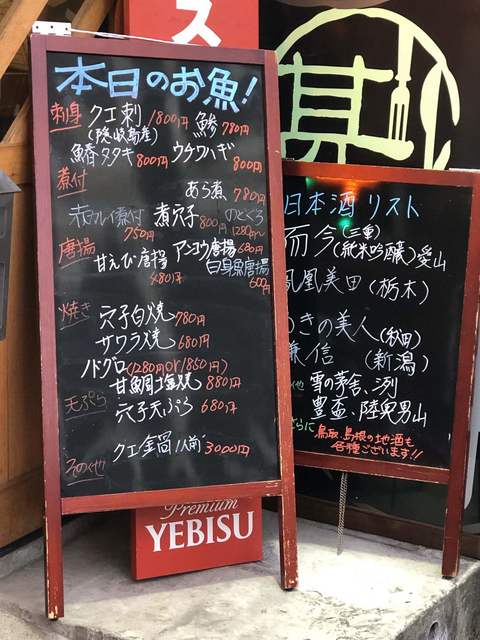 ス
本日のお魚!
刺身 クエ刺 1800円 鯵 780円
(隠岐島産)
鰆タタキ 800円 ウチワハギ 800円
煮付
あら煮 780円
赤カレイ煮付 750円 煮穴子 800円 のどぐろ 1280円〜
唐揚
甘えび唐揚 480円 アンコウ唐揚 680円
白身魚唐揚 600円
焼き
穴子白焼 780円
サワラ焼 680円
ノドグロ(1280円or1850円)
甘鯛塩焼 880円
天ぷら
穴子天ぷら 680円
クエ鍋1人前 3000円
その他
Premium
YEBISU
日本酒リスト
而今(三重)
(純米吟醸) 愛山
鳳凰美田(栃木)
ゆきの美人(秋田)
謙信(新潟)
他 雪の茅舎、洌
豊盃、陸奥男山
さらに 鳥取、島根の地酒も
各種ございます!!